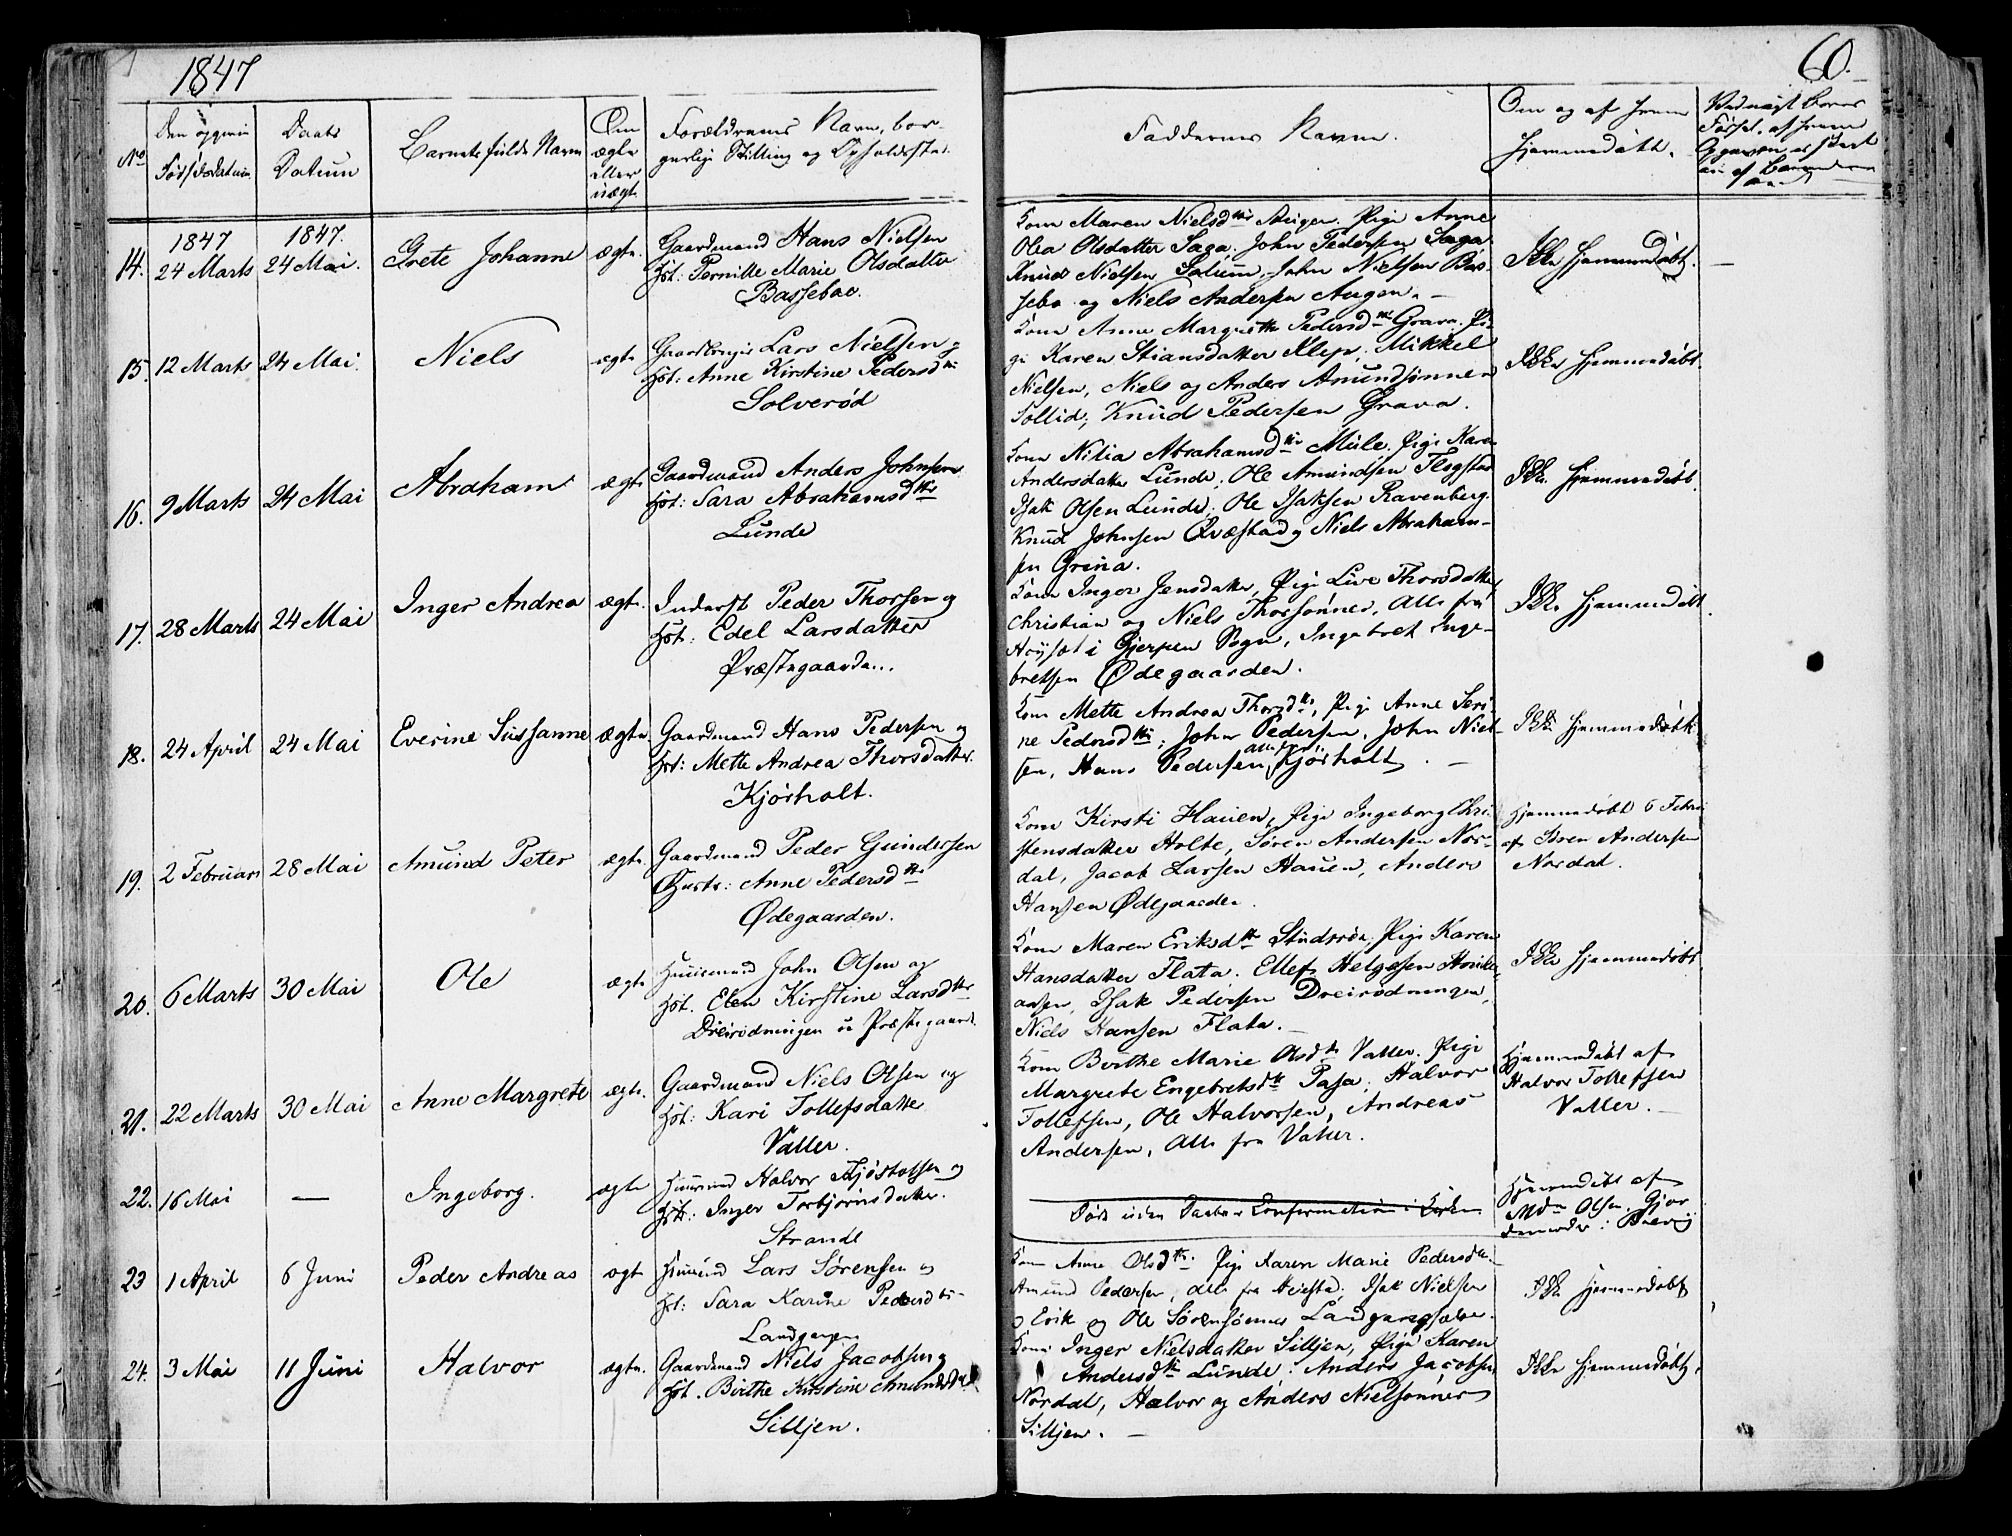 1847
60.
No
Den opgivne
Fødselsdatum
Daabs
Datum
Barnets fulde Navn
Om
ægte
eller
uægte
Forældrenes Navn, bor-
gerlige Stilling og Opholdssted.
Faddernes Navne.
Om og af hvem
hjemmedøbt.
14.
1847
24 Marts
1847.
24 Mai.
Grete Johanne
ægte.
Gaardmand Hans Nielsen
Hst: Pernille Marie Olsdatter
Basseboe.
Kone Maren Nielsdtr Pige Anne
Olea Olsdatter Saga. John Pedersen Saga
Knud Nielsen Solum, John Nielsen Bas-
sebo og Niels Andersen Augen. —
Ikke hjemmedøbt.
—
15.
12 Marts
24 Mai.
Niels
ægte
Gaardbruger Lars Nielsen og
Hst: Anne Kirstine Pedersdtr
Solverød
Kone Anne Margrethe Pedersdtr Grava. Pi-
ge Karen Stiansdatter Klep. Mikkel
Nielsen, Niels og Anders Amundsønner
Sollid, Knud Pedersen Grava.
Ikke hjemmedøbt.
16.
9 Marts
24 Mai
Abraham
ægte
Gaardmand Anders Johnsen
Hst: Sara Abrahamsdtr
Lunde
Kone Nilia Abrahamsdtr Mule. Pige Karen
Andersdatter Lunde, Ole Amundsen Flogstad
Isak Olsen Lunde, Ole Isaksen Ravenberg.
Knud Johnsen Qvæstad og Niels Abraham-
sen Grina.
Ikke hjemmedøbt.
17.
28 Marts
24 Mai
Inger Andrea
ægte.
Inderst Peder Thorsen og
Hst: Edel Larsdatter
Præstegaarden.
Kone Inger Jensdatter, Pige Live Thorsdatter
Christian og Niels Thorsønner, Alle fra
Høyset i Gjerpen Sogn, Ingebret Inge-
bretsen Ødegaarden.
Ikke hjemmedøbt.
18.
24 April
24 Mai
Everine Sussanne
ægte
Gaardmand Hans Pedersen og
Hst: Mette Andrea Thorsdatter.
Kjørholt.
Kone Mette Andrea Thorsdtr, Pige Anne Seri-
ne Pedersdtr; John Pedersen, John Niel-
sen, Hans Pedersen, alle fra Kjørholt. —
Ikke hjemmedøbt.
19.
2 Februar
28 Mai
Amund Peter
ægte.
Gaardmand Peder Gundersen
Hustr: Anne Pedersdtr
Ødegaarden.
Kone Kirsti Hauen, Pige Ingeborg Chri-
stensdatter Holte, Søren Andersen Nor-
dal, Jacob Larsen Hauen, Anders
Hansen Ødegaarden.
Hjemmedøbt 6 Febru
af Søren Andersen
Nordal.
20.
6 Marts
30 Mai
Ole
ægte
Huusmand John Olsen og
Hst. Elen Kirstine Larsdtr
Dreirødningen u. Præstegaard.
Kone Maren Eriksdtr Studsrøa, Pige Karen
Hansdatter Flata. Ellef Helgesen Hvide-
aasen, Isak Pedersen Dreirødningen,
Niels Hansen Flata. —
Ikke hjemmedøbt.
21.
22 Marts
30 Mai
Anne Margrete
ægte.
Gaardmand Niels Olsen og
Hst: Kari Tollefsdatter
Valler.
Kone Birthe Marie Olsdtr Valler. Pige
Margrete Engebretsdtr Pasa, Halvor
Tollefsen, Ole Halvorsen, Andreas
Andersen, Alle fra Valler.
Hjemmedøbt af
Halvor Tollefsen
Valler. —
22.
16 Mai
—
Ingeborg.
ægte
Huusmand Halvor Kjøstolsen og
Hst: Inger Torbjørnsdatter.
Strande
Død uden Daabens Confirmation i Kirken
Hjemmedøbt af
Mdm Olsen, Gjor
demoder i Brevig
23
1 April
6 Juni
Peder Andreas
ægte
Huusmd Lars Sørensen og
Hst: Sara Karine Pedersdtr
Landgangen
Kone Anne Olsdtr. Pige Karen Marie Pedersdtr.
Amund Pedersen, alle fra Heiestad, Isak Nielsen
og Erik og Ole Sørensønner Landgangsælven.
Ikke hjemmedøbt
24.
3 Mai
11 Juni
Halvor
ægte.
Gaardmand Niels Jacobsen og
Hst. Birthe Kirstine Amundsdtr
Silljen.
Kone Inger Nielsdatter Silljen, Pige Karen
Andersdtr Lunde. Anders Jacobsen
Nordal, Halvor og Anders Nielsønner
Silljen. —
Ikke hjemmedøbt.